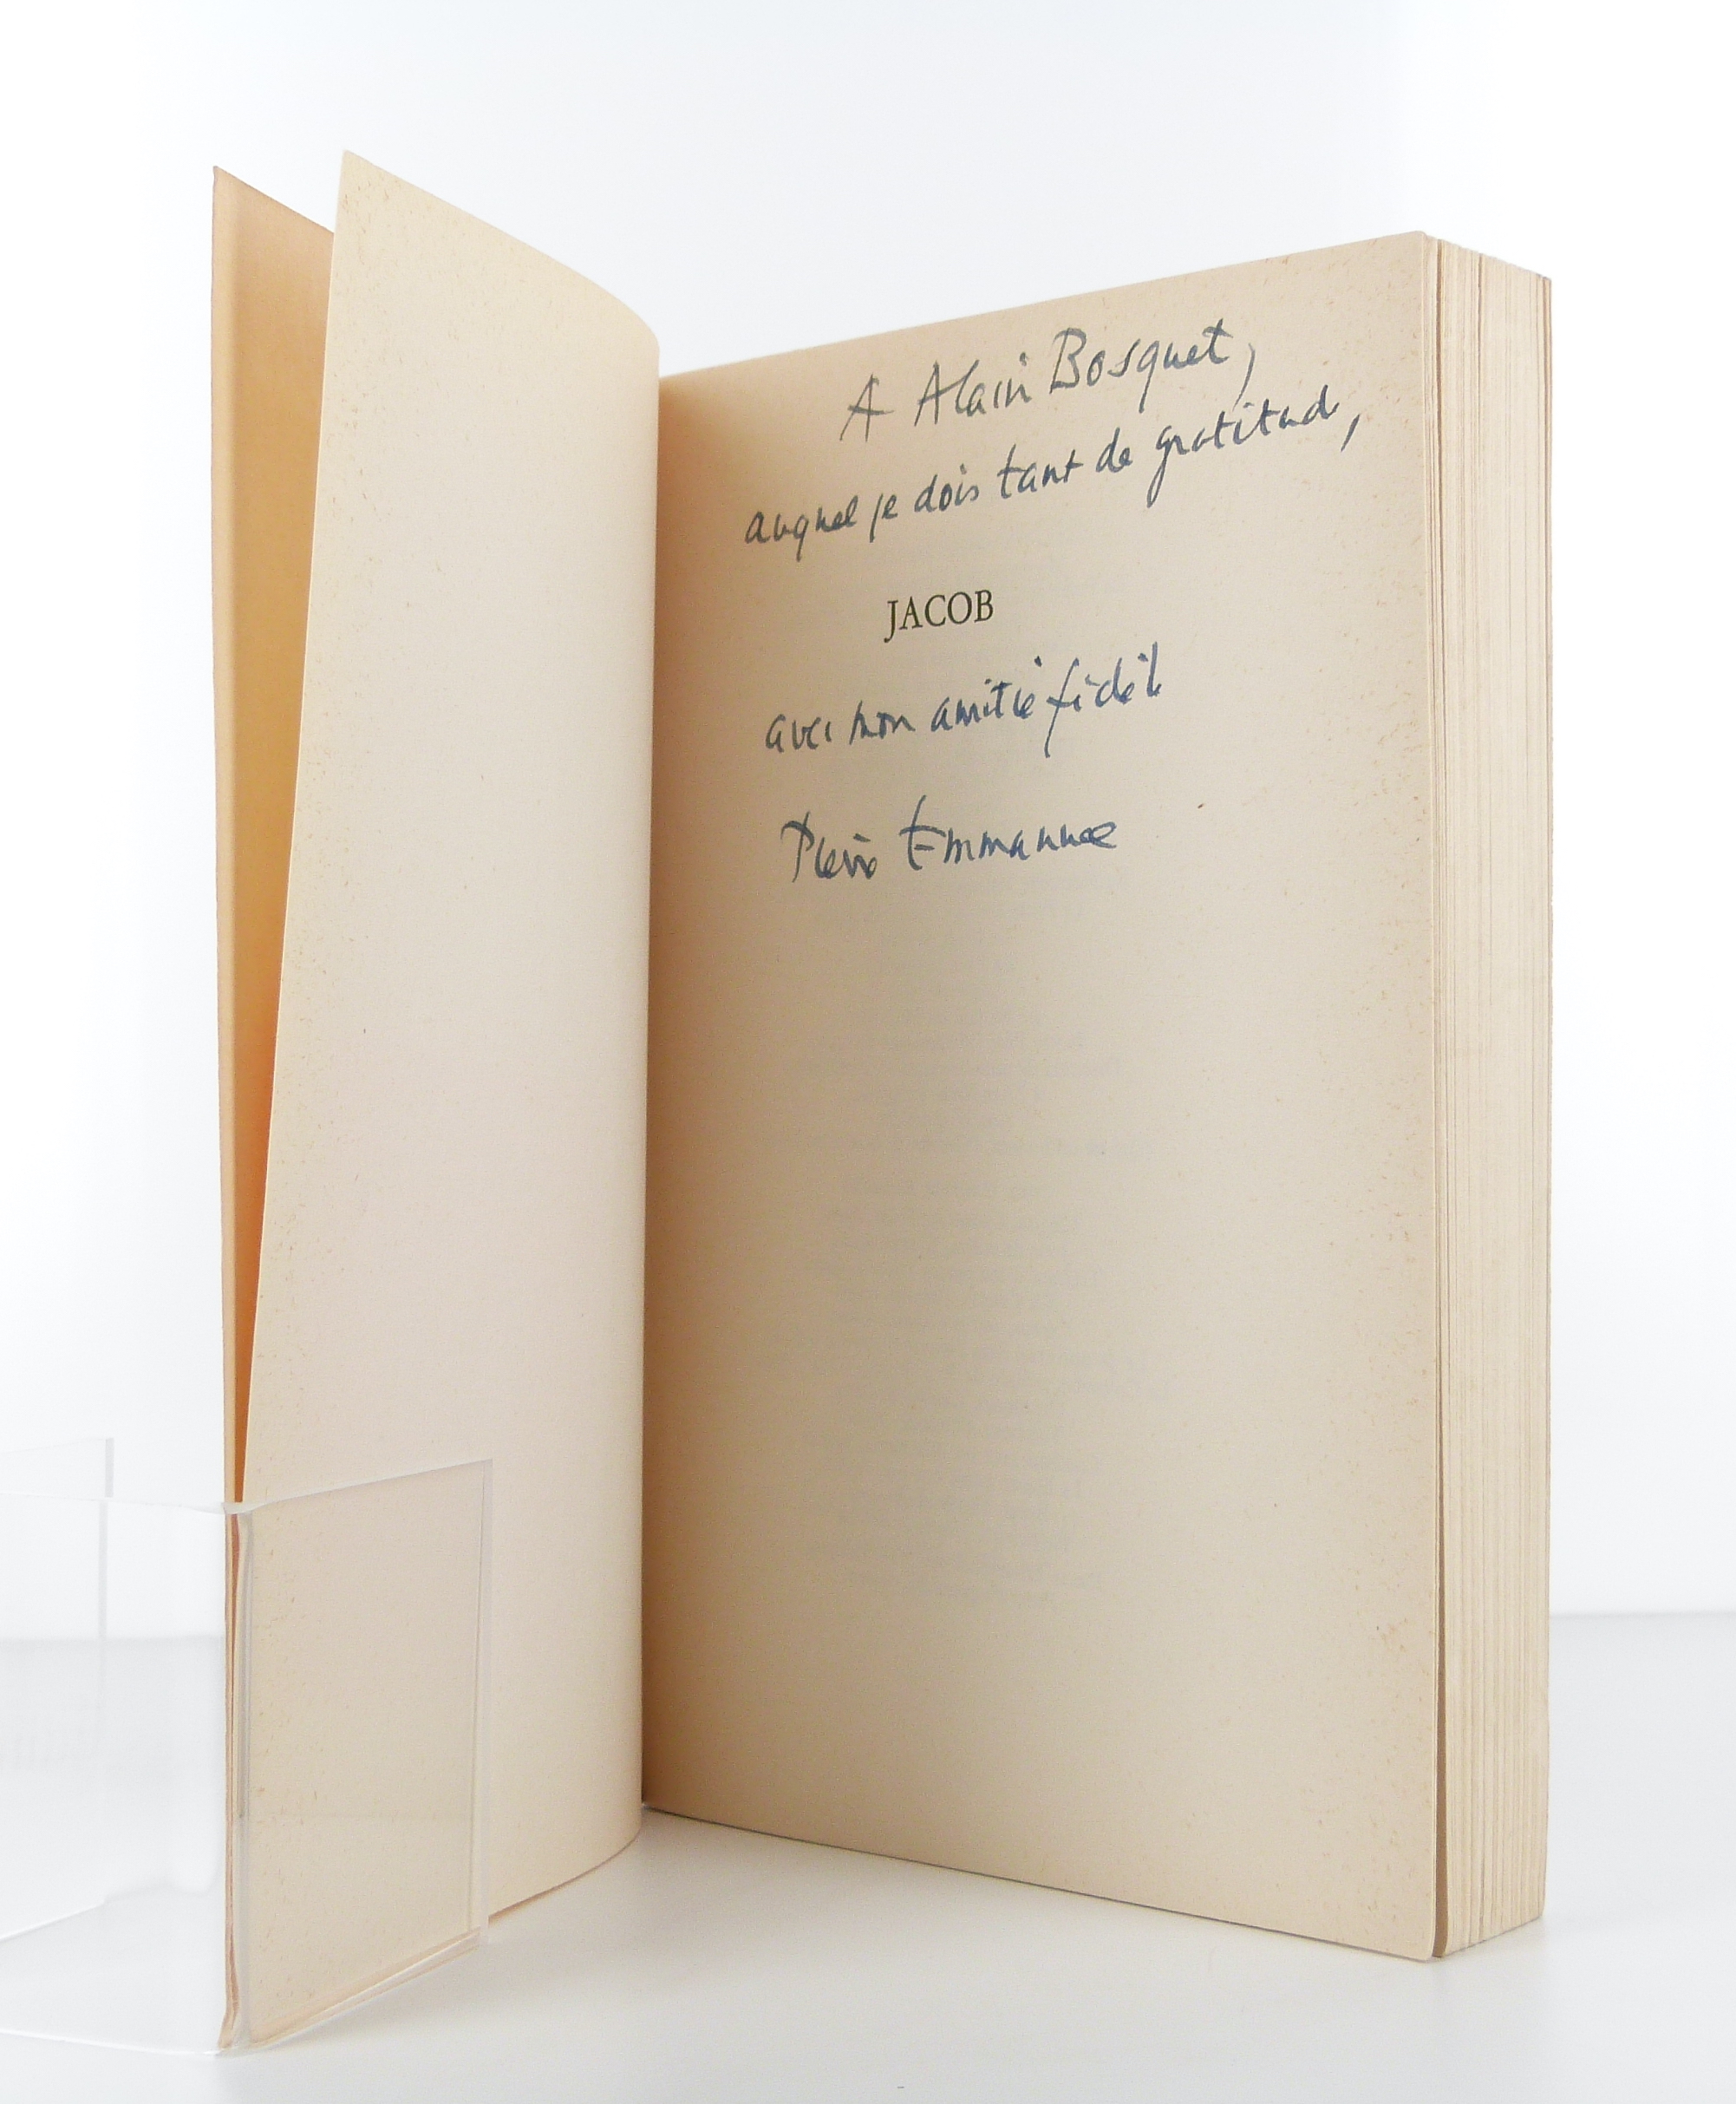 A Alain Bosquet,
auquel je dois tant de gratitude,
JACOB
avec mon amitié fidèle
Pierre Emmanuel